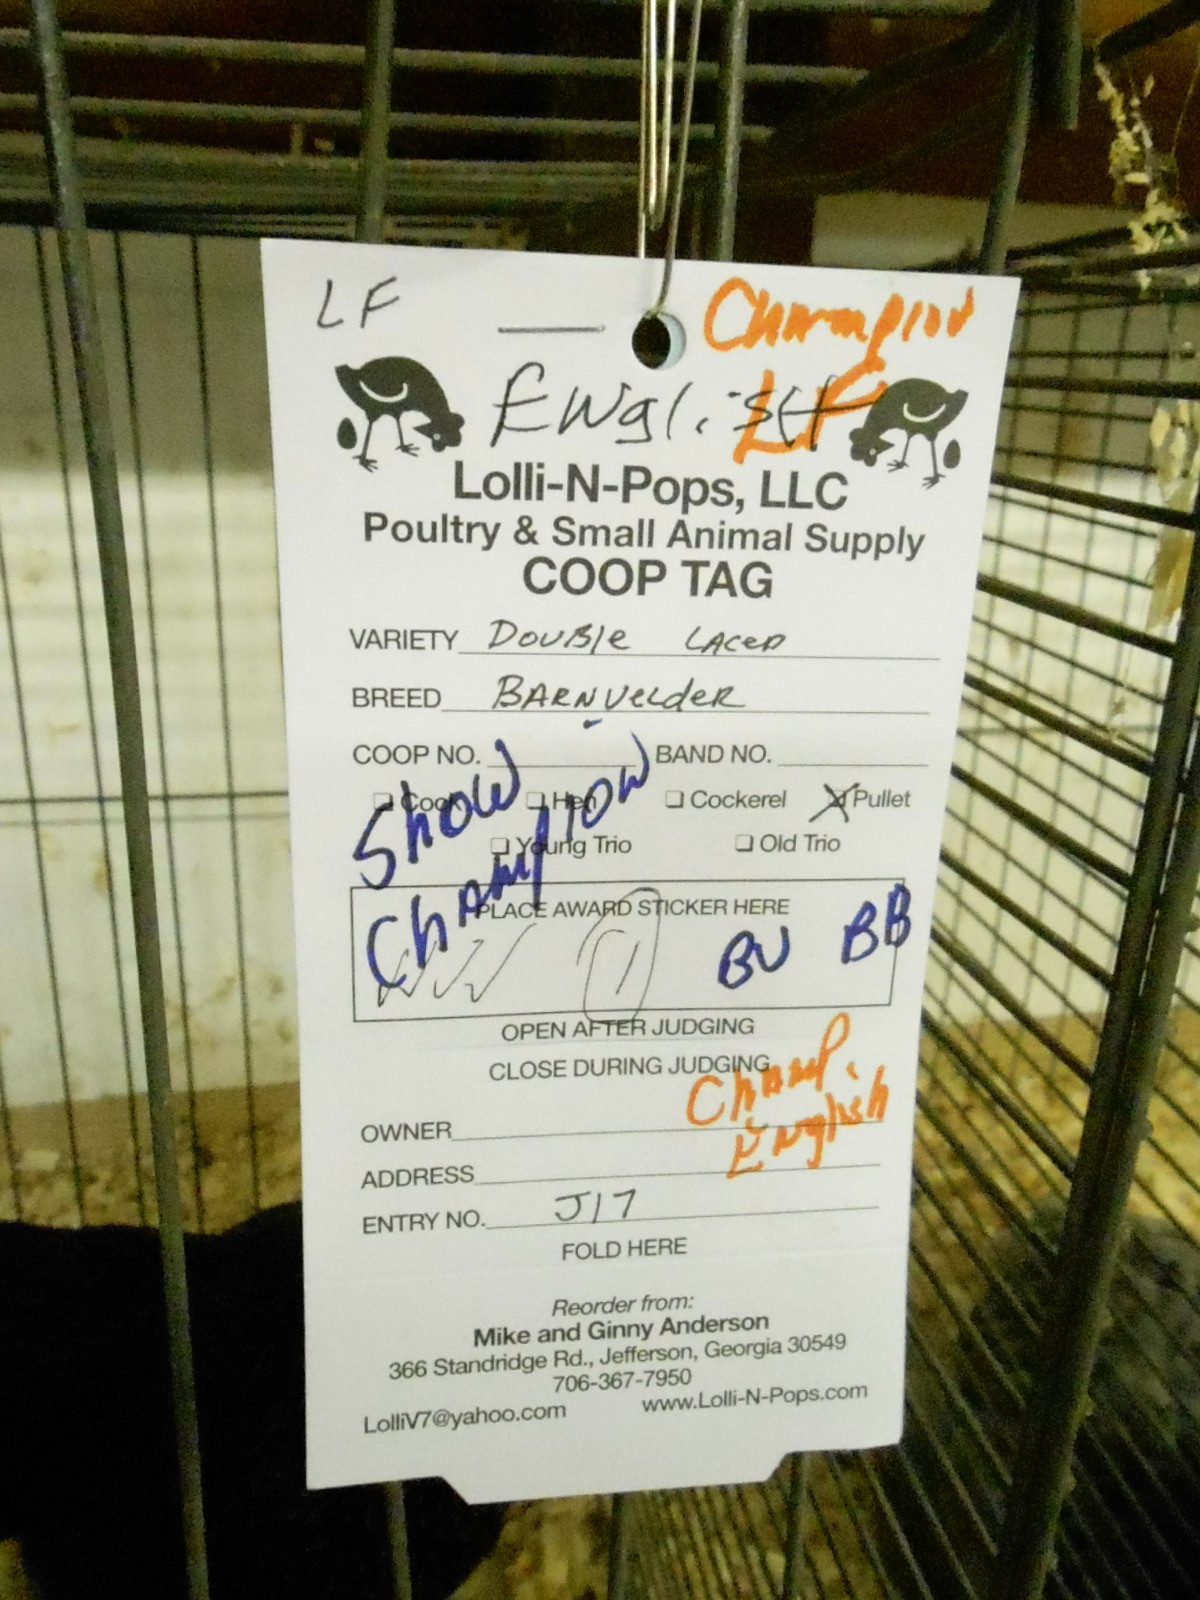 LF
Champion
LF
English
Lolli-N-Pops, LLC
Poultry & Small Animal Supply
COOP TAG
VARIETY Double Laced
BREED BARNVelder
COOP NO. BAND NO.
Cock Hen Cockerel Pullet
Young Trio Old Trio
Show
Champion
PLACE AWARD STICKER HERE
1 BV BB
OPEN AFTER JUDGING
CLOSE DURING JUDGING
Champ.
English
OWNER
ADDRESS
ENTRY NO. J17
FOLD HERE
Reorder from:
Mike and Ginny Anderson
366 Standridge Rd., Jefferson, Georgia 30549
706-367-7950
LolliV7@yahoo.com www.Lolli-N-Pops.com